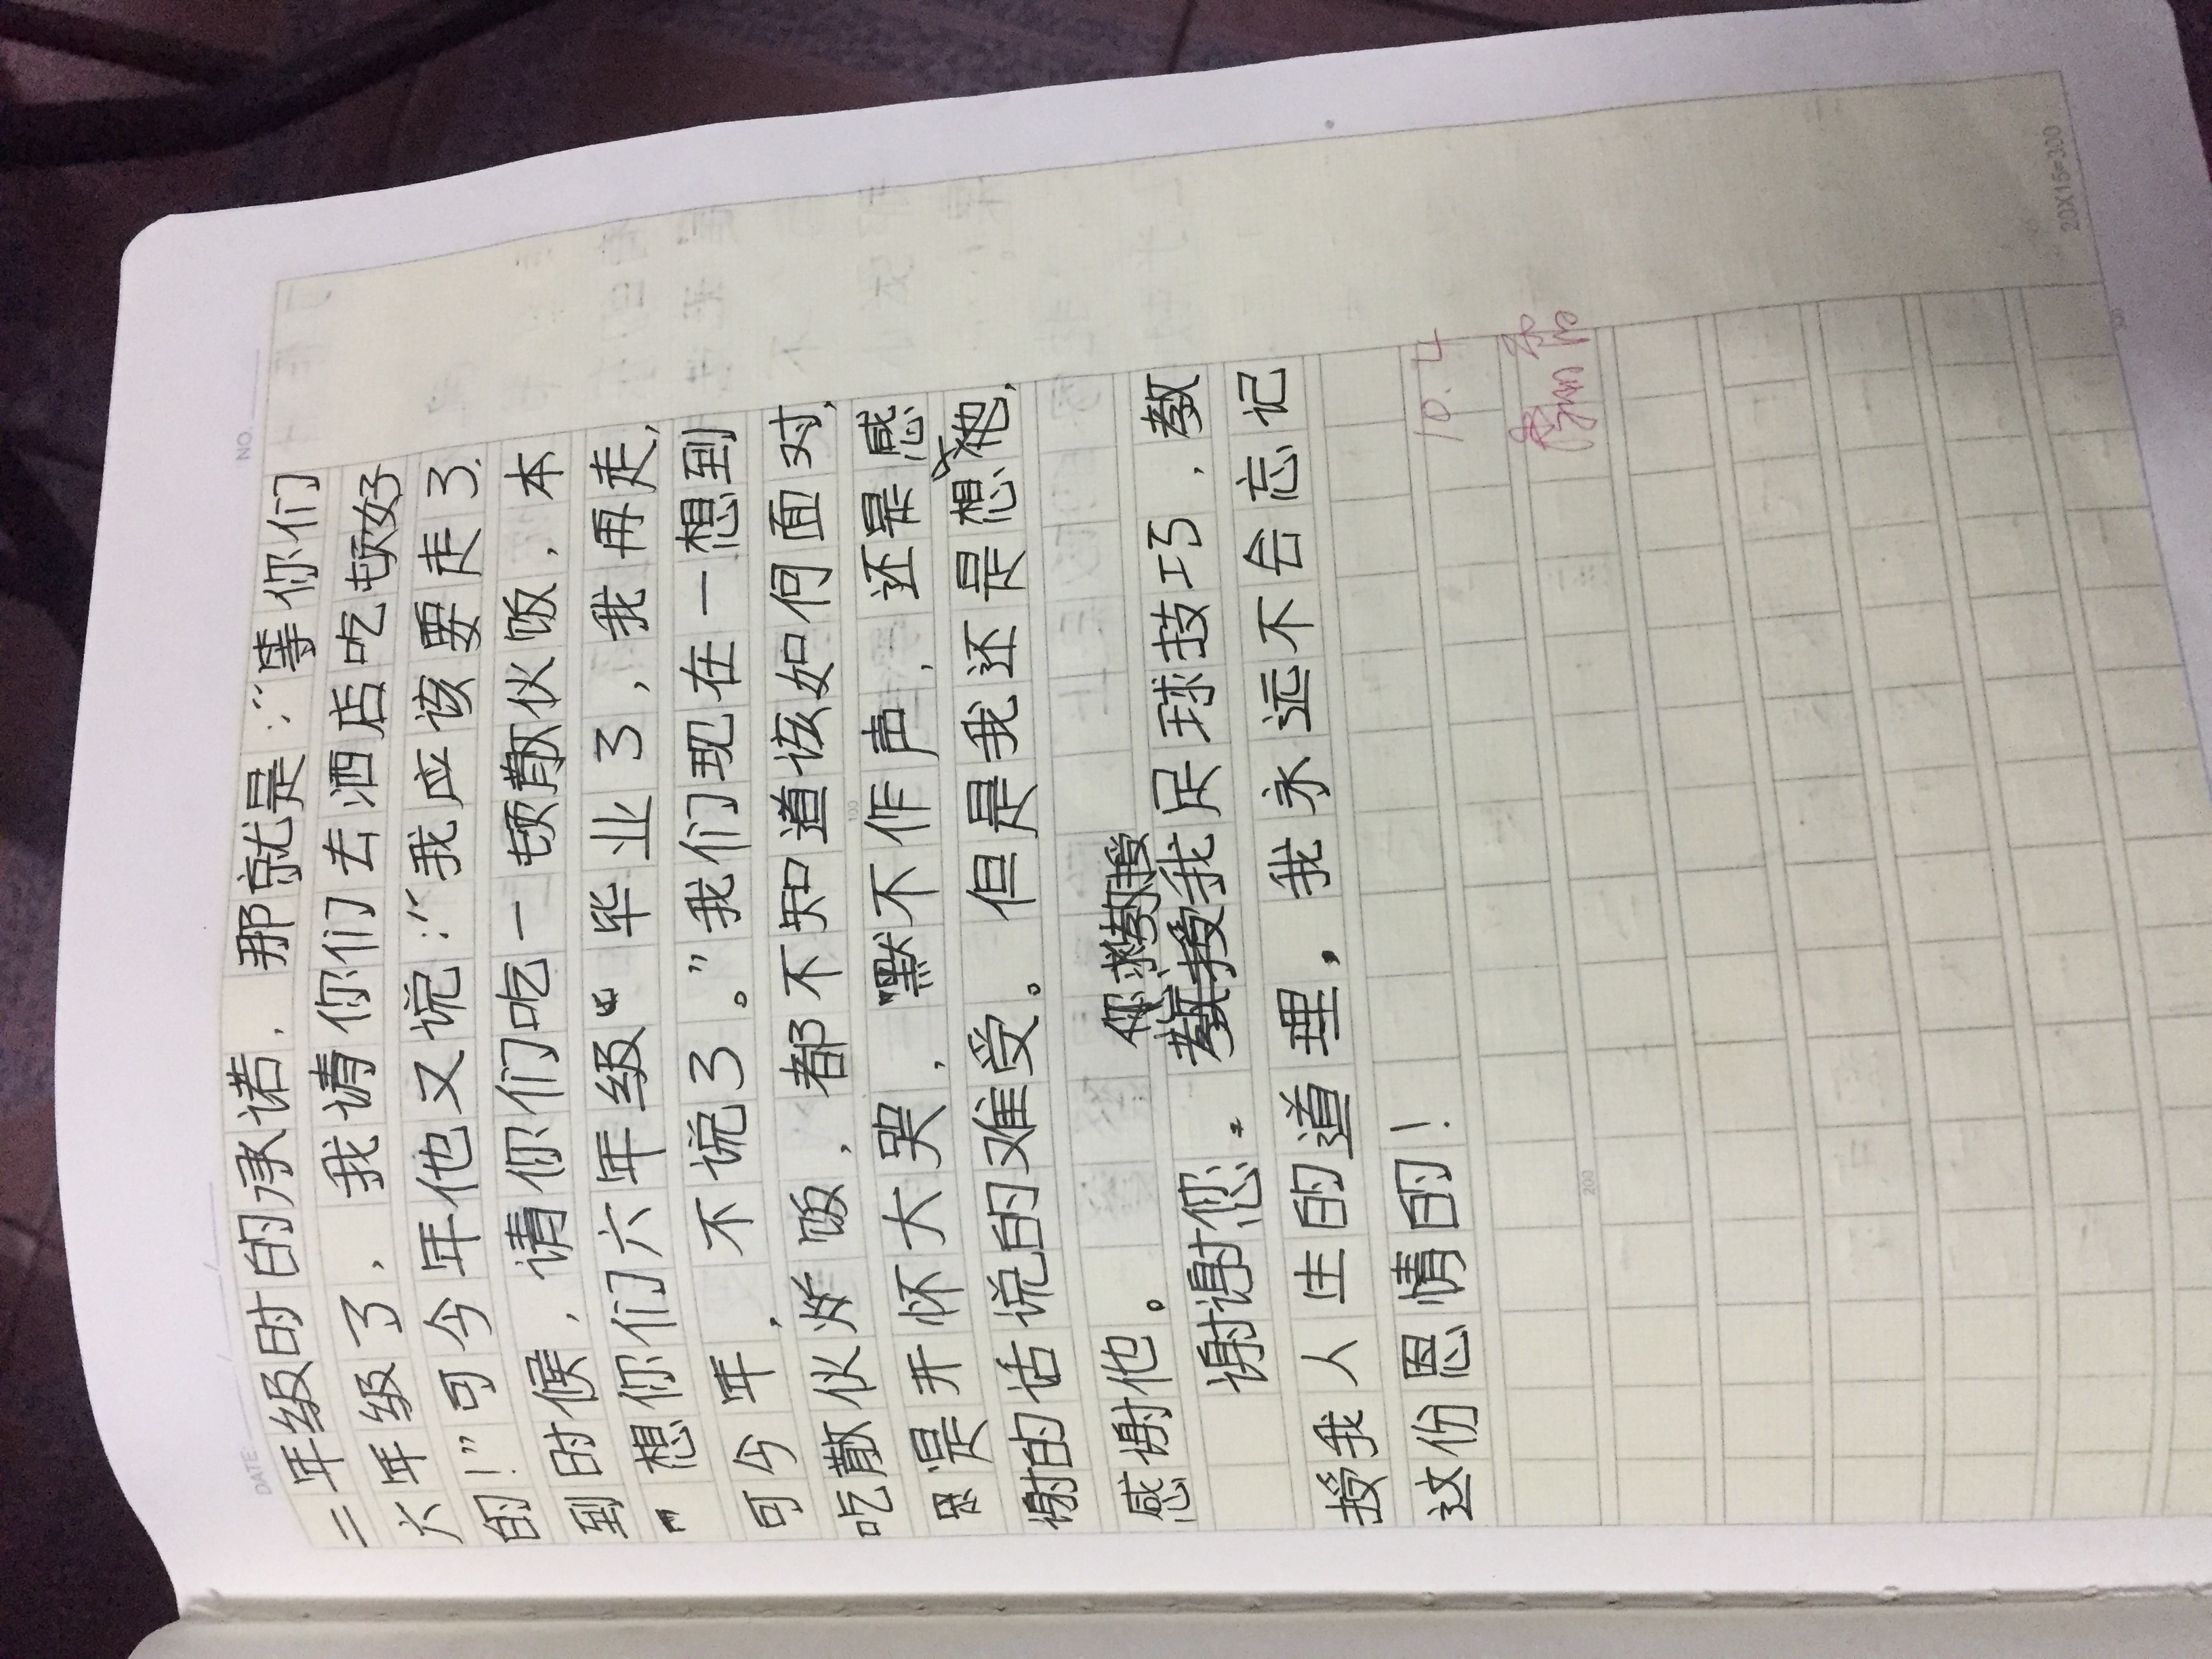 NO.
DATE
二年级时的承诺，那就是：“等你们
六年级了，我请你们去酒店吃顿好
的！”可今年他又说：“我应该要走了.
到时候，请你们吃一顿散伙饭，本
想你们六年级“毕业了，我再走，
可今年，不说了。”我们现在一想到
吃散伙饭，都不知道该如何面对，
是开怀大哭，默不作声，还是感
谢的话说的难受。但是我还是想他，
感谢他。
您
谢谢您. 我足球技巧，教
授我人生的道理，我永远不会忘记
这份恩情的！
10.4
100
200
20X15=300